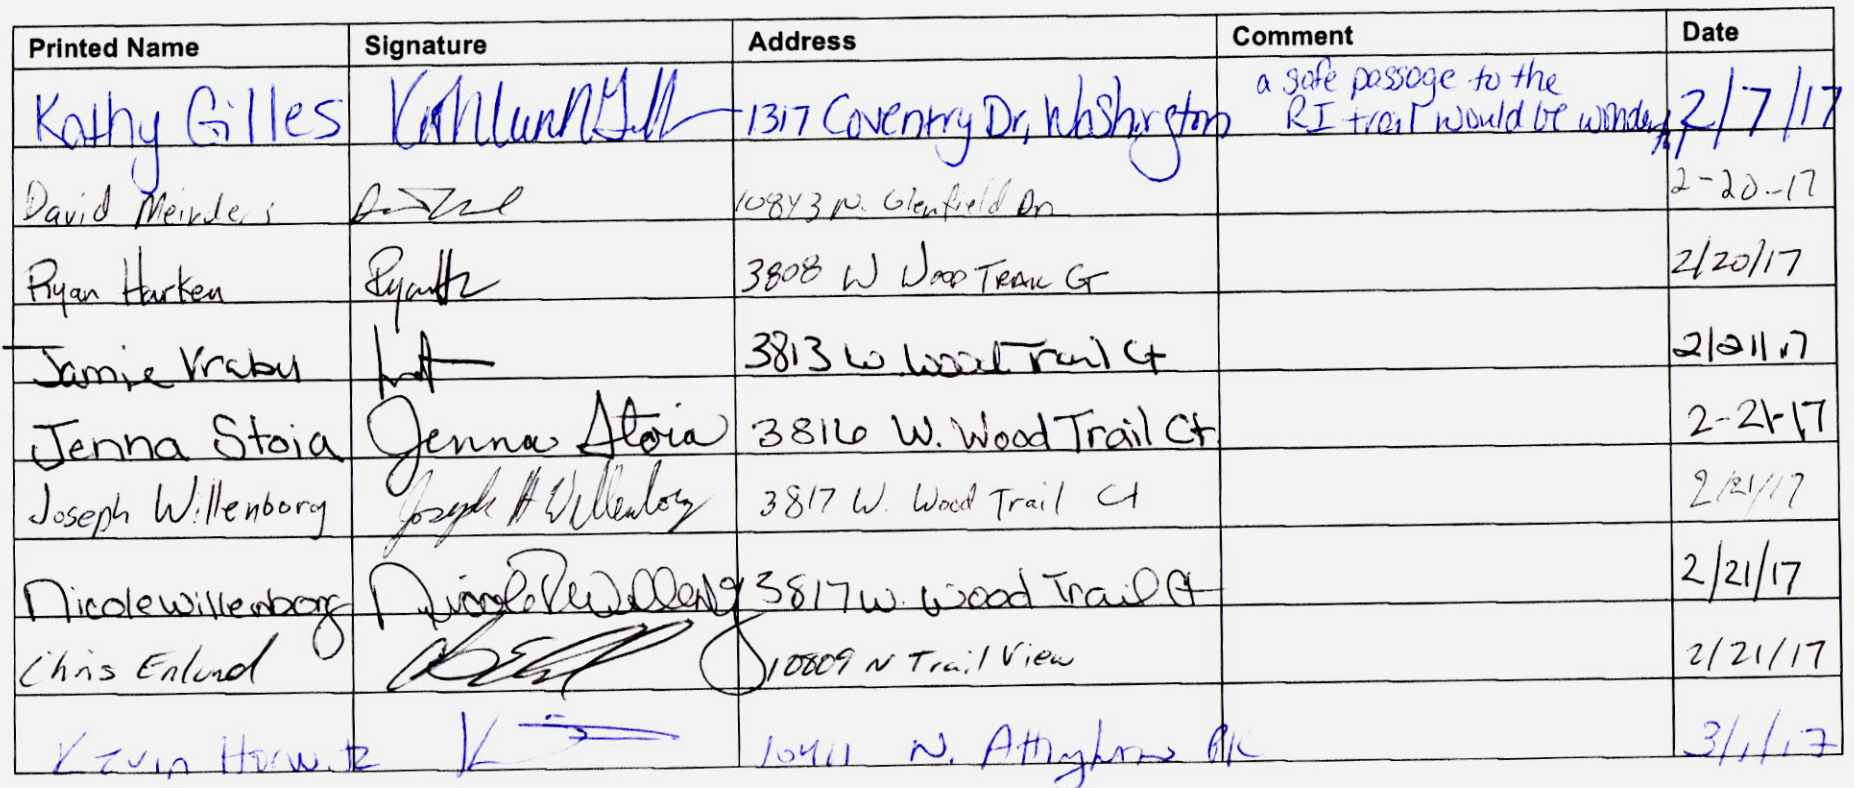 Printed Name Signature Address Comment Date
Kathy Gilles 1317 Coventry Dr, Washington a safe passage to the
RI trail would be 2/7/17
David Meinders 10843 N. Glenfield Dr 2-20-17
Ryan Harken 3808 W Wood Trail Ct 2/20/17
Jamie 3813 W. Wood Trail Ct 2/21/17
Jenna Stoia Jenna Stoia 3816 W. Wood Trail Ct 2-21-17
Joseph Willenborg Joseph H Willenborg 3817 W. Wood Trail Ct 2/21/17
Nicole Willenborg Nicole Willenborg 3817 W. Wood Trail Ct 2/21/17
Chris Enlund 10809 N Trail View 2/21/17
Kevin Horwitz 10411 N. 3/1/17